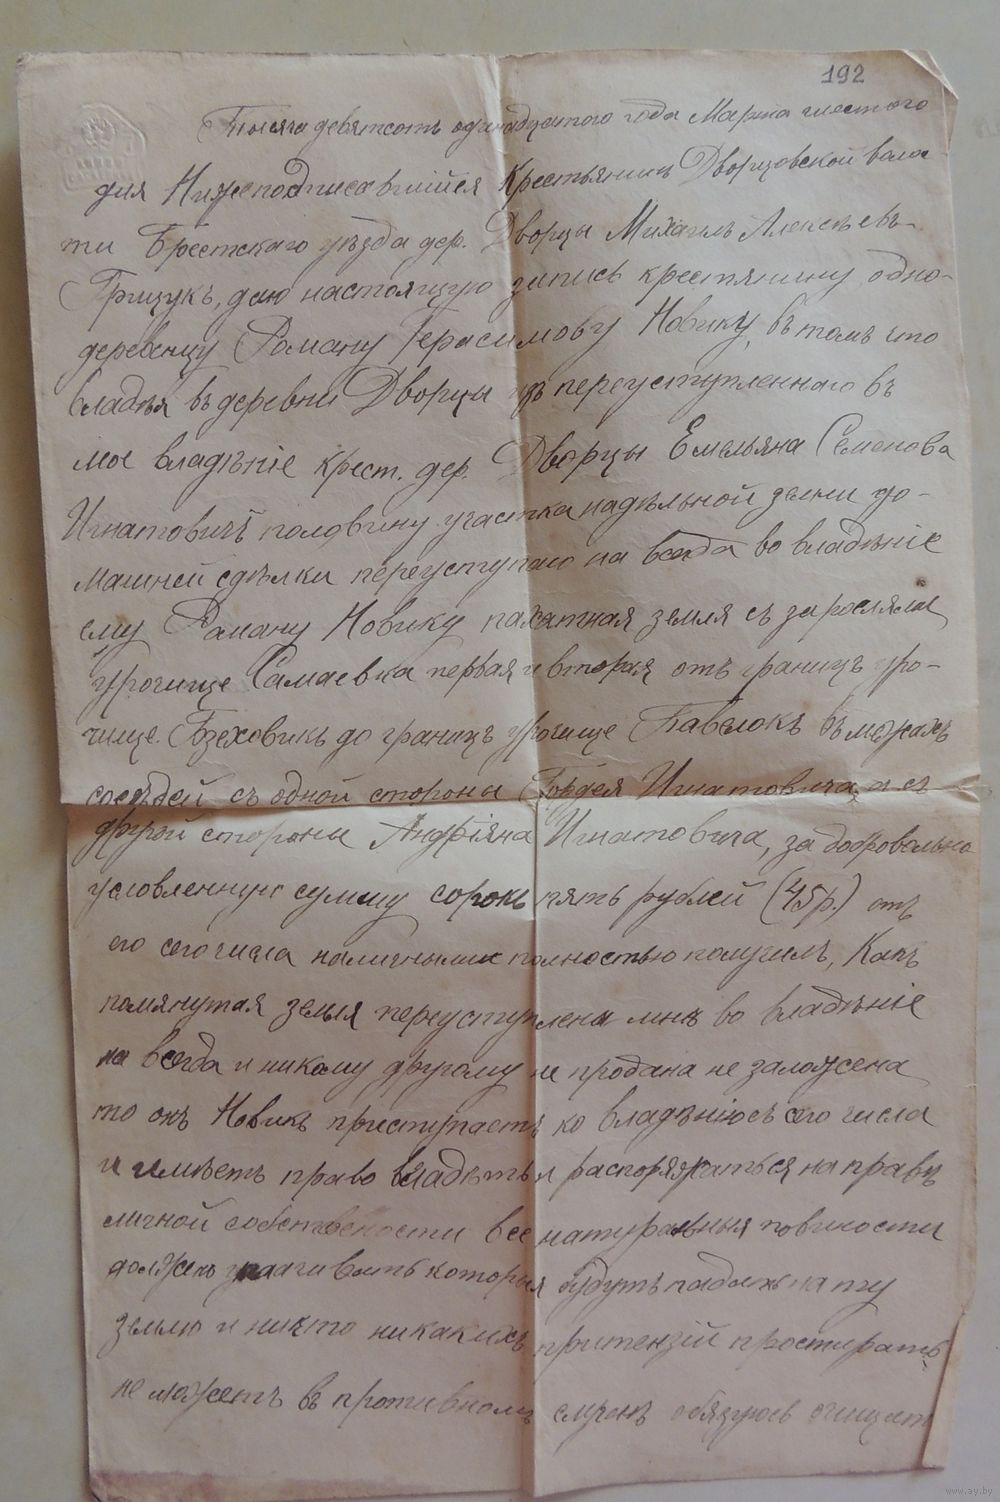 192
Тысяча девятсотъ одинадцатого года Марта шестого
дня Нижеподписавшійся Крестьянинъ Дворцовской волос-
ти Брестскаго уѣзда дер. Дворцы Михаилъ Алексѣевъ-
Грицукъ, даю настоящую запись крестянину одно-
деревенцу Роману Герасимову Новику, въ томъ что
владѣя въ деревни Дворцы изъ переуступленнаго въ
мое владѣніе крест. дер. Дворцы Емельяна Семенова
Игнатовичъ половину участка надѣльной земли до-
машней сдѣлки переуступаю на всегда во владѣніе
ему Роману Новику пахатная земля съ зарослями
урочище Самаевка первая и вторая отъ границъ уро-
чище до границъ урочище Павелокъ въ межахъ
сосѣдей съ одной стороны Гордея Игнатовича, а съ
другой стороны Андріяна Игнатовича, за добровольно
условленную сумму сорокъ пять рублей (45р.) отъ
его сего числа наличными полностью получилъ, Какъ
помянутая земля переуступлена мнѣ во владѣніе
на всегда и никому другому не продана не заложена
то онъ Новикъ приступаетъ ко владѣнію съ сего числа
и имѣетъ право владѣть и распоряжаться на правѣ
личной собствености все натуральныя повиности
должен уплачивать которыя будутъ падать на ту
землю и никто никакихъ притензій простирать
не можетъ въ противномъ случаѣ обязуюсь очищать
www.ay.by